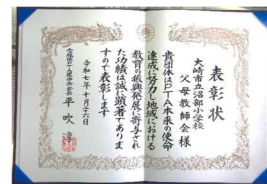 表彰状
大崎市立沼部小学校
父母教師会様
貴団体はPTA本来の使命
達成に努力し地域における
教育の振興発展に寄与され
た功績は誠に顕著でありま
すので表彰します
令和七年十月二十六日
平吹淳